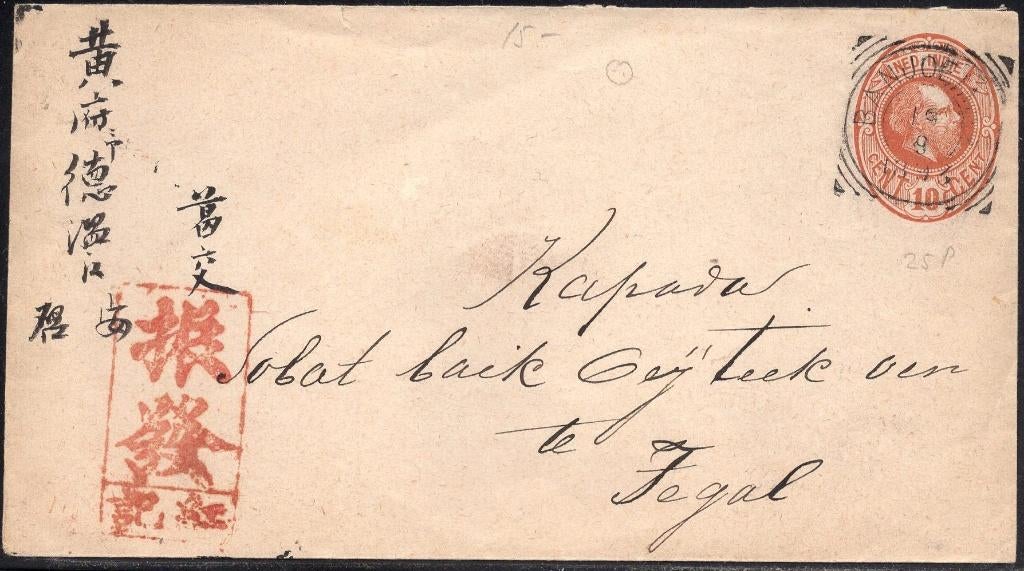 黄府
德温
葛交
安
振發
記
15-
NED. INDIE
10
CENT
CENT
BANDJOE
19
8
25P
Kapada
Sobat baik Oeij Teek oen
te
Tegal